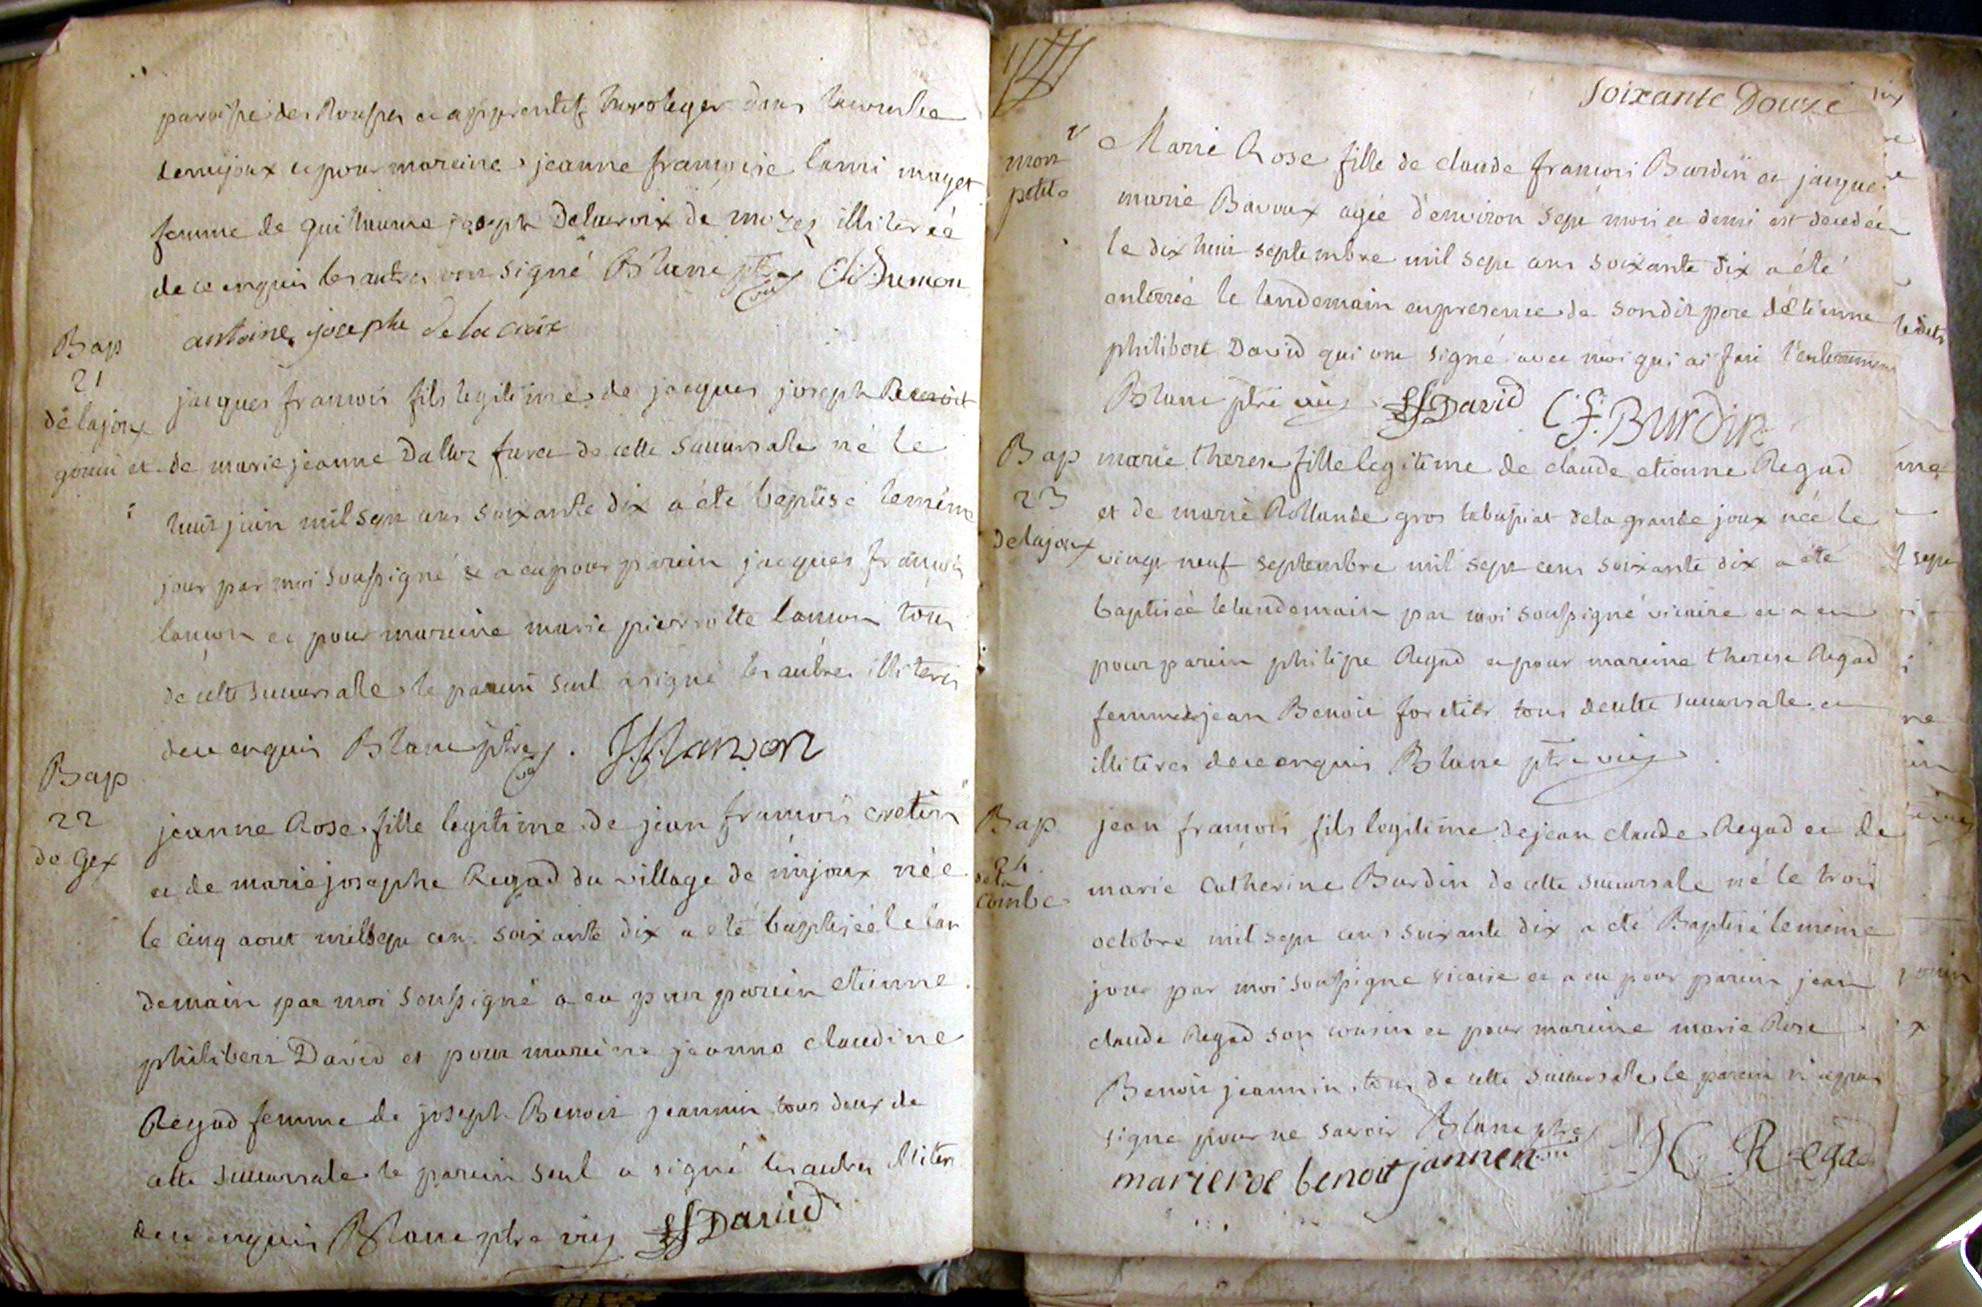 paroisse des Rousses et apprentif horologer dans la
de mijoux et pour maraine jeanne françoise lanui mayet
femme de guillaume joseph Delacroix de illiterée
de ce enquis les autres ont signé Blanc ptre vic
antoine josephe de la croix
Bap
21
de lajoux
jacques francois fils legitime de jacques joseph Benoit
gouin et de marie jeanne Dalloz de cette succursale né le
huit juin mil sept cens soixante dix a été baptisé le même
jour par moi soussigné et a eu pour parein jacques françois
lanson et pour mareine marie pierrotte lanson tous
de cette succursale le parein seul a signé les autres illiterés
de ce enquis Blanc ptre vic JF Lanson
Bap
22
de Gex
jeanne Rose fille legitime de jean francois cretin
et de marie josephe Regad du village de mijoux née
le cinq aout mil sept cens soixante dix a été baptisée le lan
demain par moi soussigné a eu pour parein etienne
philibert David et pour mareine jeanne claudine
Regad femme de joseph Benoit jeannin tous deux de
cette succursale le parein seul a signé les autres illiter
de ce enquis Blanc ptre vic David
soixante Douze
mort
petite
Marie Rose fille de claude françois Burdin et jacque
marie Bavoux agée d'environ sept mois et demi est decedée
le dix huit septembre mil sept cens soixante dix a été
enterrée le lendemain en presence de son dit pere d'étienne
philibert David qui ont signé avec moi qui ai fait l'enterrement
Blanc ptre vic David C F Burdin
Bap
23
de lajoux
marie therese fille legitime de claude etienne Regad
et de marie Rollande gros de la grande joux née le
vingt neuf septembre mil sept cens soixante dix a été
baptisée le landemain par moi soussigné vicaire et a eu
pour parein philipe Regad et pour mareine therese Regad
femme de jean Benoit foretier tous de cette succursale et
illiteres de ce enquis Blanc ptre vic
Bap
24
de la
combe
jean francois fils legitime de jean claude Regad et de
marie Catherine Burdin de cette succursale né le trois
octobre mil sept cens soixante dix a été Baptisé le même
jour par moi soussigné vicaire et a eu pour parein jean
claude Regad son cousin et pour mareine marie Rose
Benoit jeannin tous de cette succursale le parein n'a pas
signe pour ne savoir Blanc ptre vic
marie rose benoit jannen JC Regad